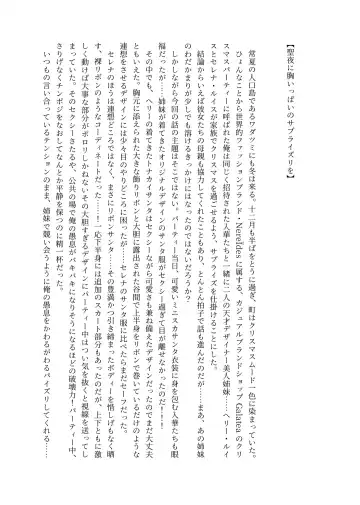 【聖夜に胸いっぱいのサプライズリを】
常夏の人口島であるワダツミにも冬は来る。十二月も半ばをとうに過ぎ、町はクリスマスムード一色に染まっていた。
ひょんなことから世界的ファッションブランド・Needdesに属する、カジュアルブランドショップGalateaのクリ
スマスパーティーに呼ばれた俺は同じく招待された人華たちと一緒に二人の天才デザイナー美人姉妹……ヘリー・ルイ
スとセレナ・ルイスが家族でクリスマスを過ごせるよう、サプライズを仕掛けることにした。
結論からいえば彼女たちの母親も協力してくれたこともあり、とんとん拍子で話も進んだのだが……まあ、あの姉妹
のわだかまりが少しでも溶けるきっかけにはなったのではないだろうか?
しかしながら今回の話の主題はそこではない。パーティー当日、可愛いミニスカサンタ衣装に身を包む人華たちも眼
福だったが……姉妹が着てきたオリジナルデザインのサンタ服がセクシー過ぎて目が離せなかったのだ!!
その中でも、ヘリーの着てきたトナカイサンタはセクシーながら可愛さも兼ね備えたデザインだったのでまだ大丈夫
ともいえた。胸元に添えられた大きな飾りリボンと大胆に露出された谷間で上半身をリボンで巻いているだけのような
連想をさせるデザインには少々目のやりどころに困ったが……セレナのサンタ服に比べたらまだセーフだった。
セレナのほうは連想どころではなく、まさにリボンサンタ……その豊満かつ引き締まったボディーを惜しげもなく晒
す、裸リボンのようなコーディネートだった……!下半身には追加のスカート部分もあったのだが、上下ともに激
しく動けば大事な部分がポロリしかねないその大胆すぎるデザインにパーティー中はつい気を抜くと視線を送ってし
まい、そのセクシーさたるや、公共の場で俺の愚息がバキバキになりそうになるほどの破壊力!パーティー中、
さりげなくチンポジをなおしてなんとか平静を保つのに精一杯だった。
いつもの言い合っているテンションのまま、姉妹で競い合うように俺の愚息をかわるがわるパイズリしてくれる……